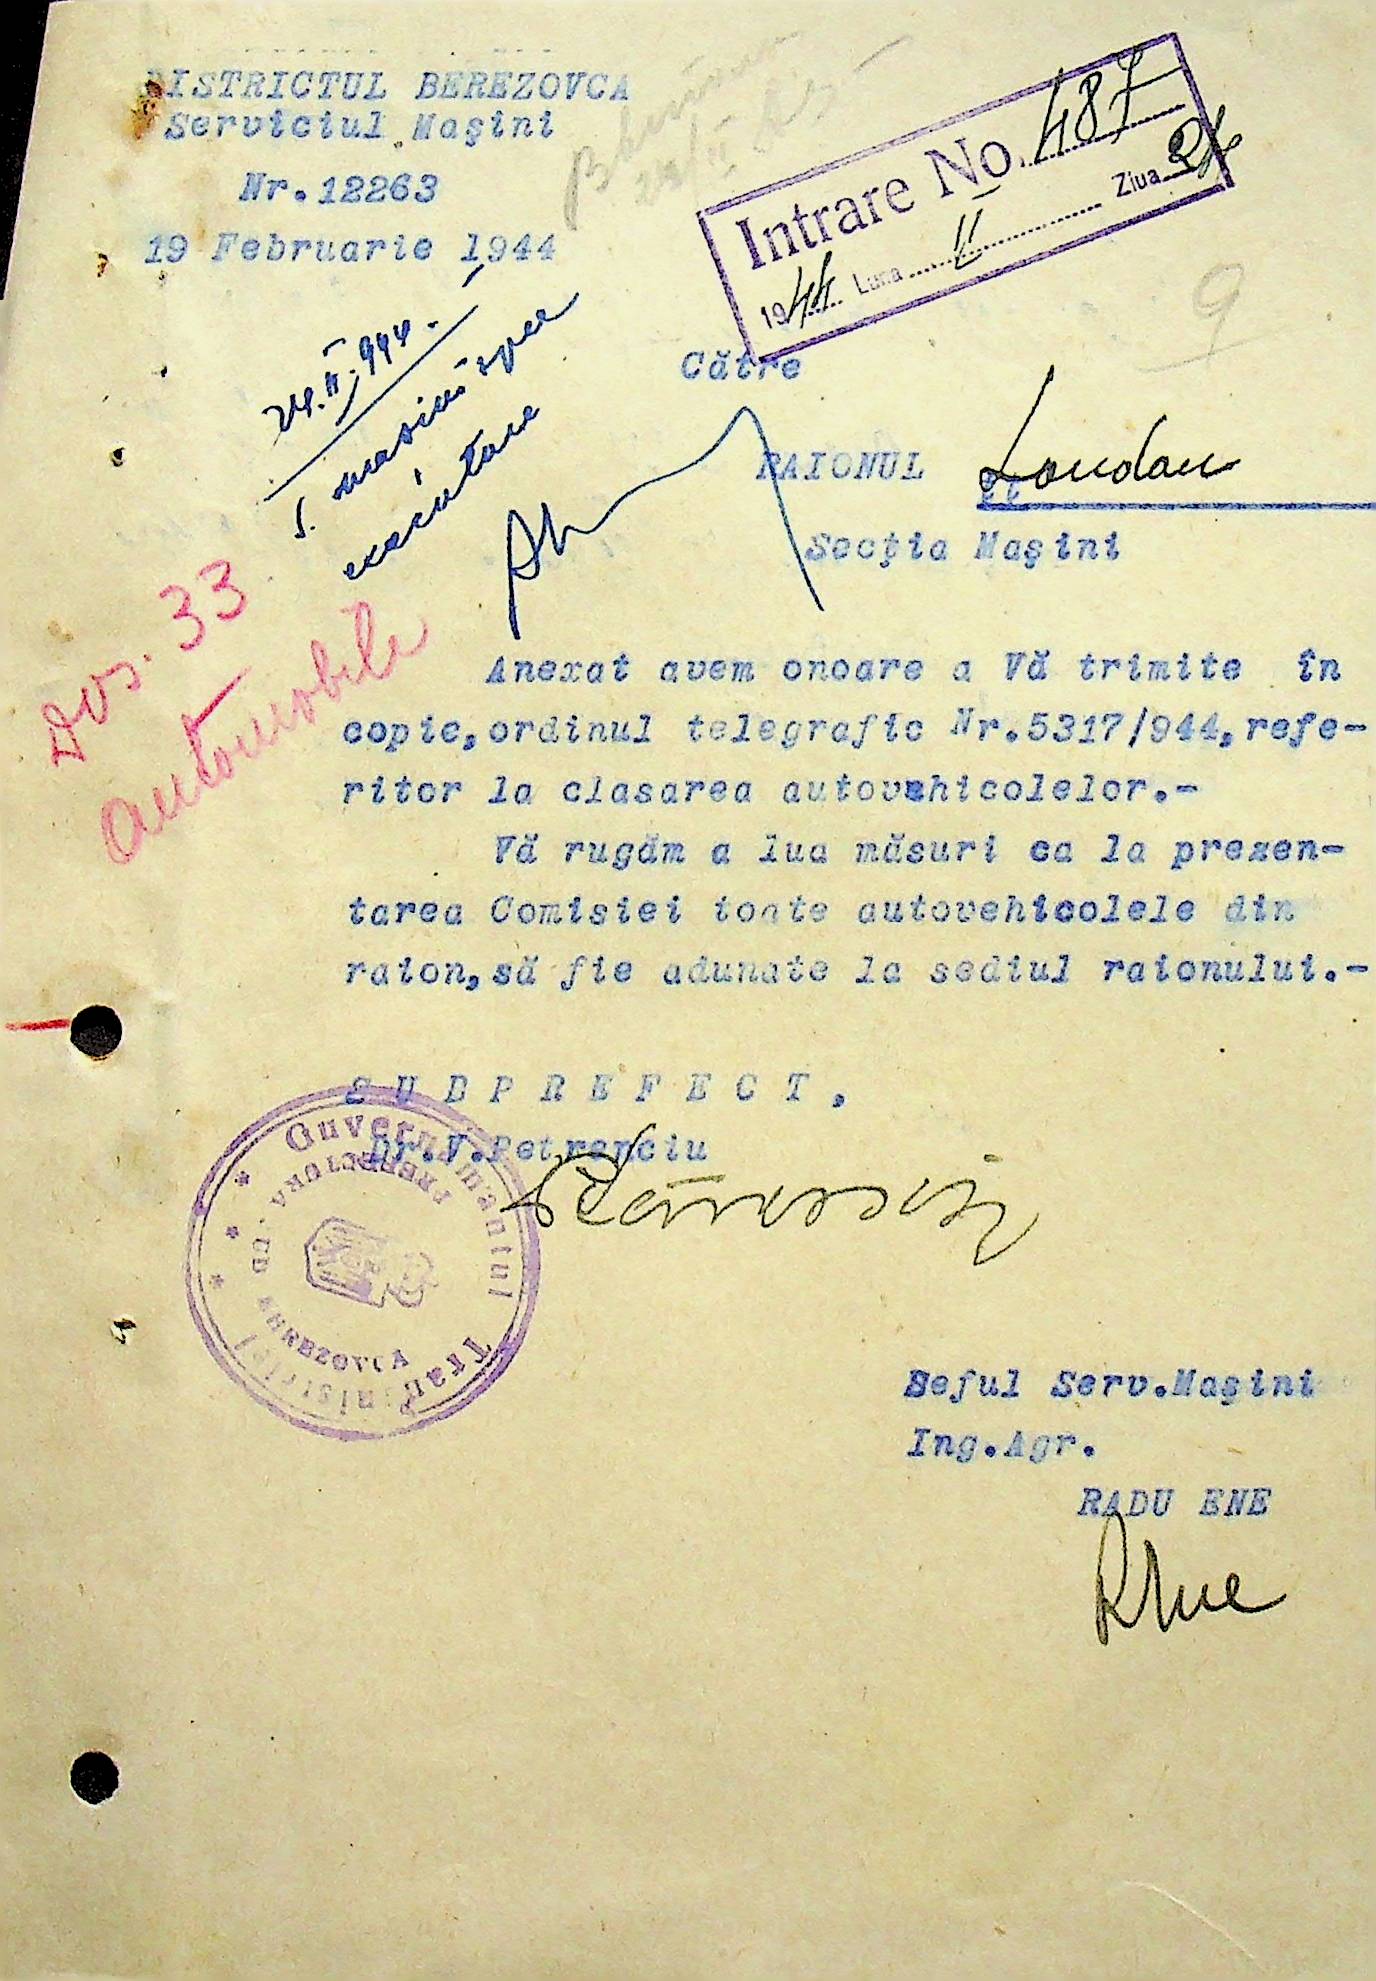 DISTRICTUL BEREZOVCA
Serviciul Maşini
Nr.12263
19 Februarie 1944
Intrare No. 487
1944 Luna II Ziua 24
9
24.II.944.
S. masini spre
executare
Către
RAIONUL Landau
Secţia Maşini
Dos. 33
automobile
Anexat avem onoare a Vă trimite în
copie, ordinul telegrafic Nr.5317/944, refe-
ritor la clasarea autovehicolelor.-
Vă rugăm a lua măsuri ca la prezen-
tarea Comisiei toate autovehicolele din
raion, să fie adunate la sediul raionului.-
S U B P R E F E C T,
Dr.V.Petrenciu
Guvernământul
PREFECTURA JUD BEREZOVCA
Şeful Serv.Maşini
Ing.Agr.
RADU ENE
REne